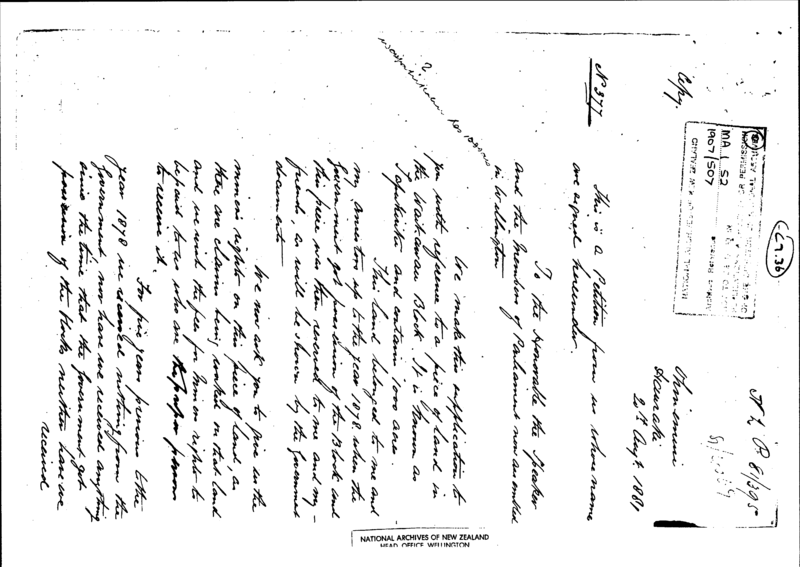 C7.36
N L P 81/395
Copy.
MA 1 52
1907/507
Ohinemuri
Hauraki
2nd Augt. 1881
No 377
This is a Petition from us whose names
are signed hereunder.
To the Honorable the Speaker
and the Members of Parliament now assembled
in Wellington
We make this application to
you with reference to a piece of land in
the Waihau Block. It is known as
and contains 1000 acres.
This land belonged to me and
my ancestors up to the year 1878 when the
Government got possession of the Block and
this piece was then reserved to me and my
friends, as will be shown by the Government
documents
We now ask you to give us the
miners rights on this piece of land, as
there are claims being worked on that land
and we wish the fee for Miners right to
be paid to us who are the proper persons
to receive it.
For five years previous to the
year 1878 we received nothing from the
Government nor have we received anything
since the time that the Government got
possession of the Block neither have we
received
NATIONAL ARCHIVES OF NEW ZEALAND
HEAD OFFICE WELLINGTON